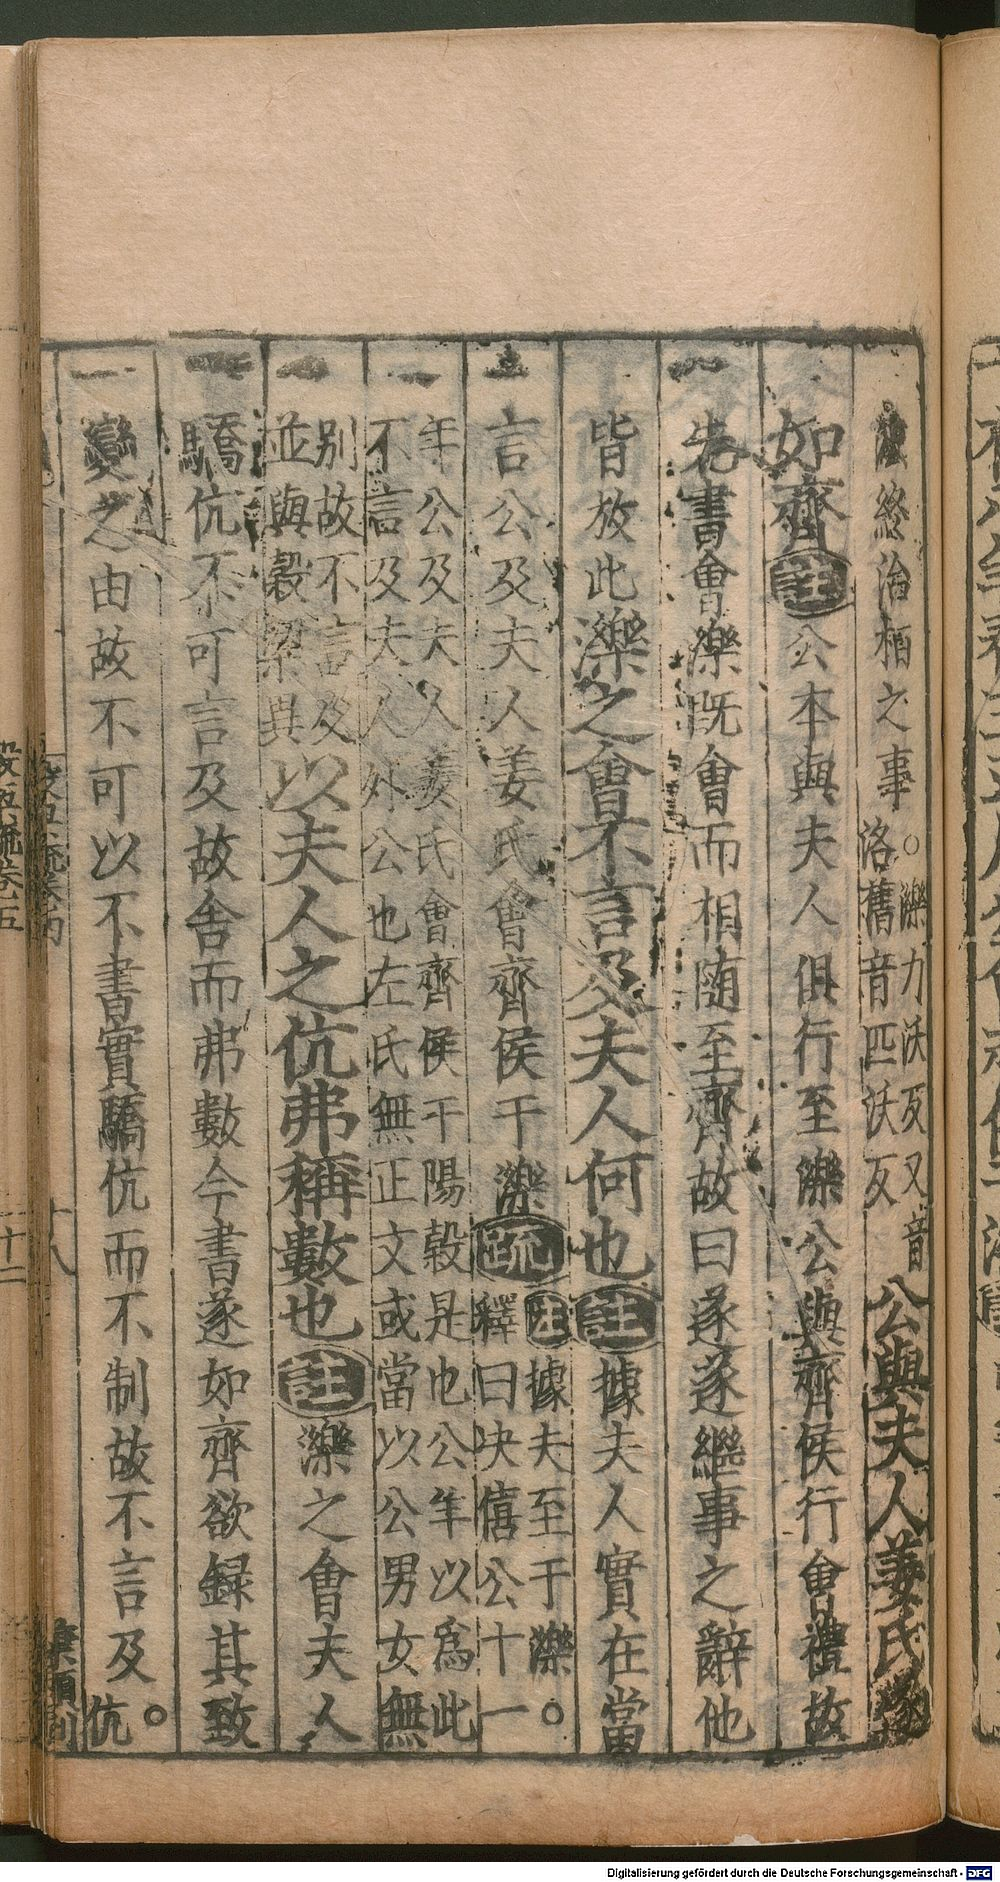 終治桓之事○濼力沃反又音洛舊音匹沃反公與夫人姜氏遂
如齊註公本與夫人俱行至濼公與齊侯行會禮故
先書會濼既會而相随至齊故曰遂遂繼事之辭他
皆放此濼之會不言及夫人何也註據夫人實在當
言公及夫人姜氏會齊侯于濼疏註據夫至于濼○釋曰決僖公十一
年公及夫人姜氏會齊侯于陽穀是也公羊以爲此
不言及夫人外公也左氏無正文或當以公男女無
別故不言及
並與穀梁異以夫人之伉弗稱數也註濼之會夫人
驕伉不可言及故舍而弗數今書遂如齊欲録其致
變之由故不可以不書實驕伉而不制故不言及○伉
十八
Digitalisierung gefördert durch die Deutsche Forschungsgemeinschaft - DFG